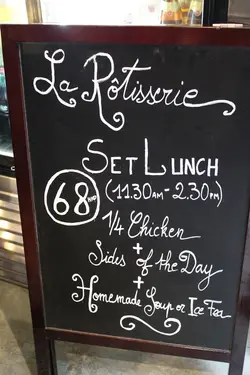 La Rôtisserie
SET LUNCH
68HKD (11.30AM-2.30PM)
1/4 Chicken
+
Sides of the Day
+
Homemade Soup or Ice Tea